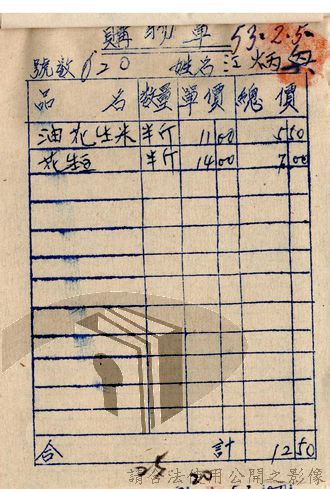 購物單
53.2.5.
號數 620 姓名 江炳
品名 數量 單價 總價
油花生米 半斤 11 00 5 50
花生 半斤 14 00 7 00
合計 12 50
25 20
請合法使用公開之影像